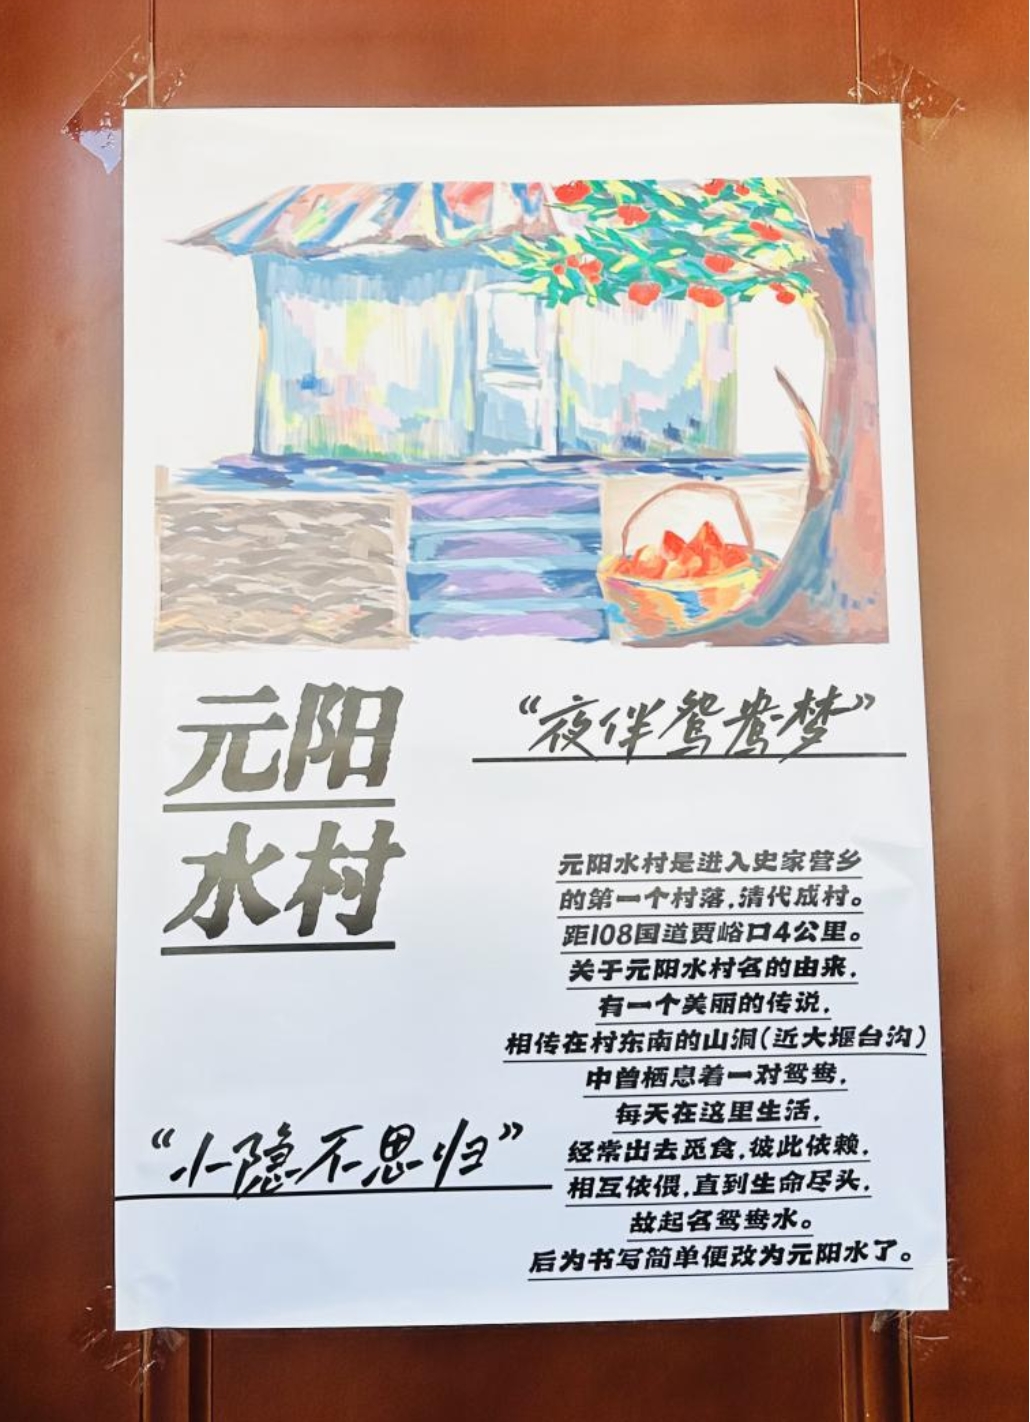 元阳
水村
“夜伴鸳鸯梦”
元阳水村是进入史家营乡
的第一个村落,清代成村。
距108国道贾峪口4公里。
关于元阳水村名的由来,
有一个美丽的传说,
相传在村东南的山洞(近大堰台沟)
中曾栖息着一对鸳鸯,
每天在这里生活,
经常出去觅食,彼此依赖,
相互依偎,直到生命尽头,
故起名鸳鸯水。
后为书写简单便改为元阳水了。
“小隐不思归”